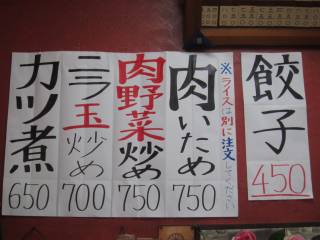 餃子
450
※ライスは別に注文してください
肉いため
750
肉野菜炒め
750
ニラ玉炒め
700
カツ煮
650